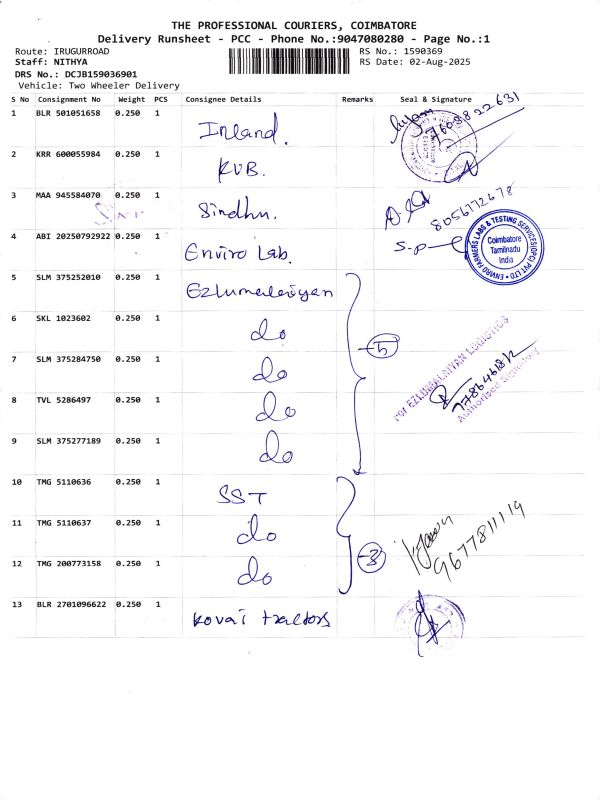 THE PROFESSIONAL COURIERS, COIMBATORE
Delivery Runsheet - PCC - Phone No.:9047080280 - Page No.:1
Route: IRUGURROAD
Staff: NITHYA
DRS No.: DCJB159036901
Vehicle: Two Wheeler Delivery
RS No.: 1590369
RS Date: 02-Aug-2025
S No Consignment No Weight PCS Consignee Details Remarks Seal & Signature
1 BLR 501051658 0.250 1 Inland. 7608822631
2 KRR 600055984 0.250 1 KVB.
3 MAA 945584070 0.250 1 Sindhu. 8056772678
4 ABI 20250792922 0.250 1 Enviro Lab. S.P
ENVIRO FARMERS LABS & TESTING SERVICES(OPC) PVT LTD
Coimbatore
Tamilnadu
India
5 SLM 375252010 0.250 1 Ezlumalaiyan
6 SKL 1023602 0.250 1 do
7 SLM 375284750 0.250 1 do 5
For EZLUMALAIYAN LOGISTICS
Authorised Signatory
8 TVL 5286497 0.250 1 do
9 SLM 375277189 0.250 1 do
10 TMG 5110636 0.250 1 SST
11 TMG 5110637 0.250 1 do 3 9677811119
12 TMG 200773158 0.250 1 do
13 BLR 2701096622 0.250 1 Kovai tractors